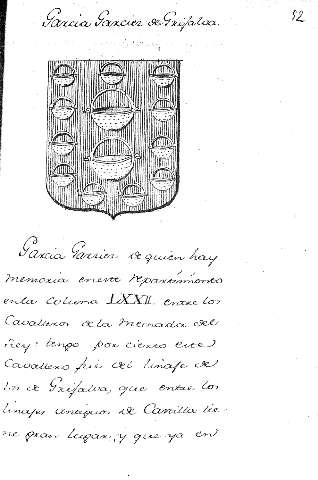 Garcia Garcies de Grijalva.
52
Garcia Garcies de quien hay
memoria en este repartimiento
en la coluna LXXII entre los
Cavalleros de la mesnada del
Rey: tengo por cierto este
Cavallero fue del linaje de
los de Grijalva, que entre los
linajes antiguos de Castilla tie-
ne gran lugar, y que ya en